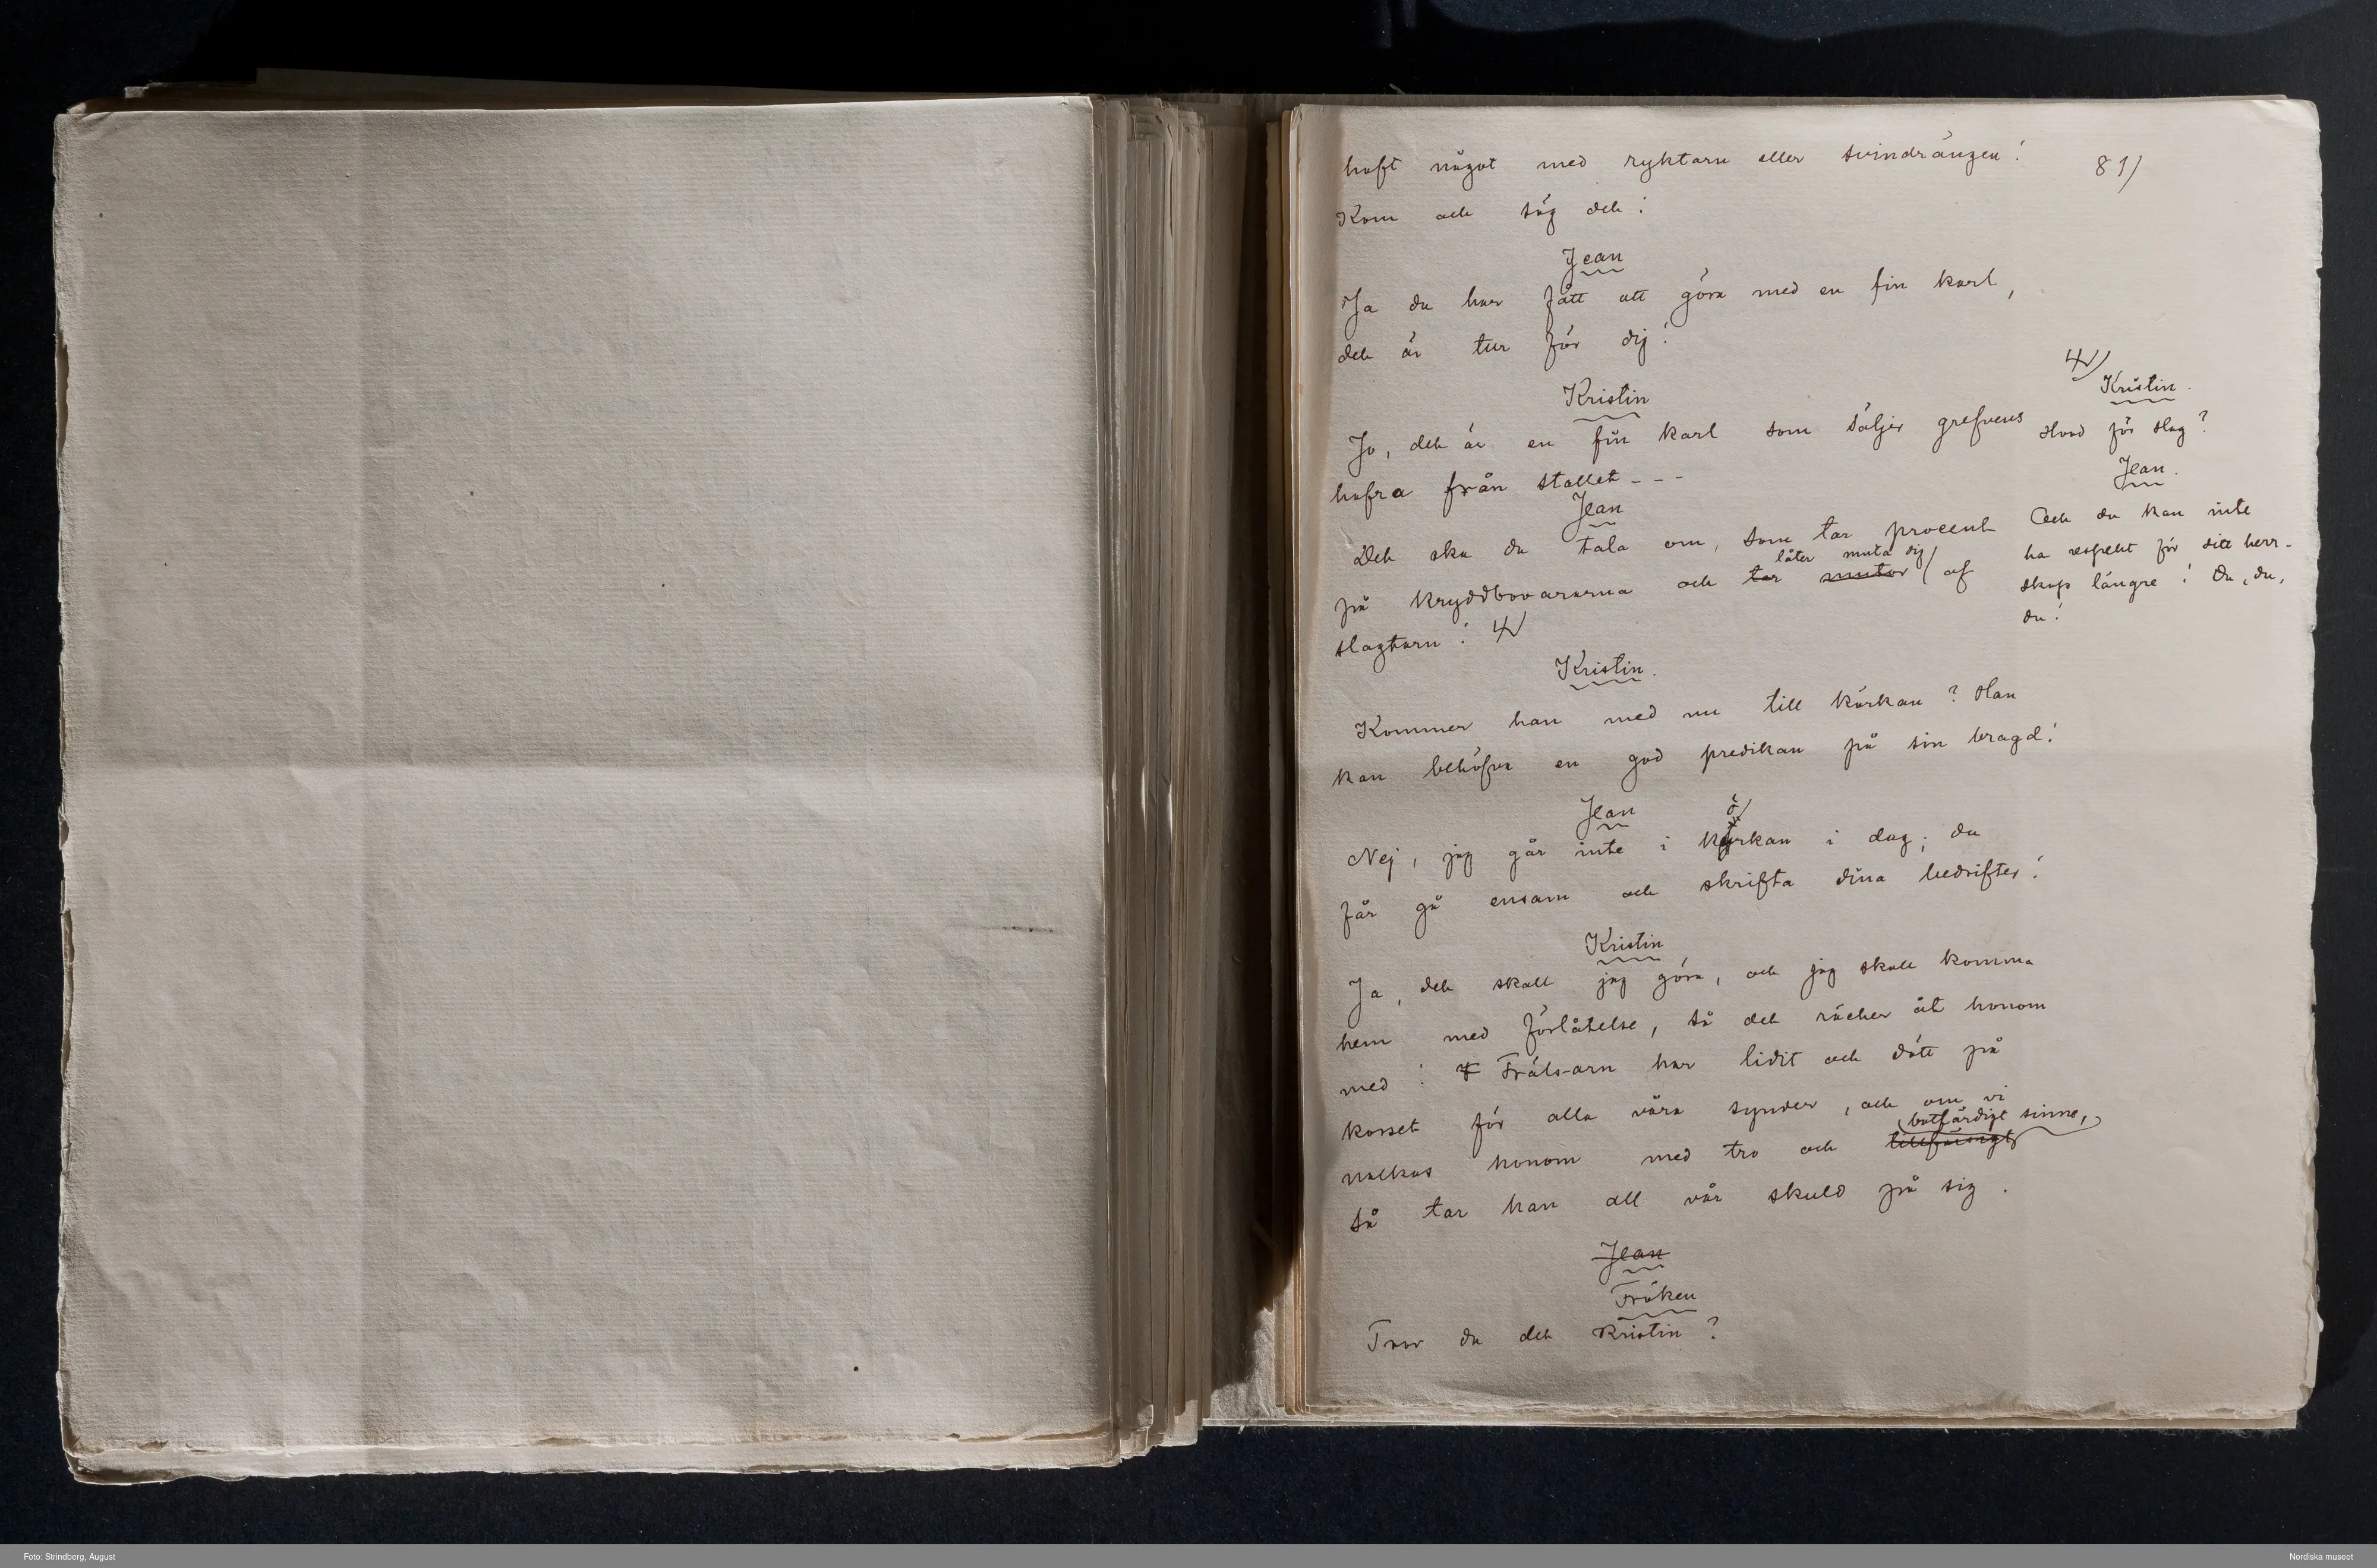 haft något med ryktarn eller svindrängen! 81)
Kom och säg det!
Jean
Ja du har fått att göra med en fin karl,
det är tur för dig!
Kristin
Jo, det är en fin karl som säljer grefvens
hafra från stallet - - -
Jean
Det ska du tala om, som tar procent
låter muta dig
på kryddbovarurna och tar mutor af
slagtarn!
Kristin.
Hvad för slag?
Jean.
Och du kan inte
ha respekt för ditt herr-
skap längre! Du, du,
du!
Kristin.
Kommer han med nu till körkan? Han
kan behöfva en god predikan på sin bragd!
Jean
ö
Nej, jag går inte i kyrkan i dag; du
får gå ensam och skrifta dina bedrifter!
Kristin
Ja, det skall jag göra, och jag skall komma
hem med förlåtelse, så det räcker åt honom
med! F Frälsarn har lidit och dött på
korset för alla våra synder, och om vi
botfärdigt sinne,
nalkas honom med tro och
så tar han all vår skuld på sig.
Jean
Fröken
Tror du det Kristin?
Foto: Strindberg, August
Nordiska museet